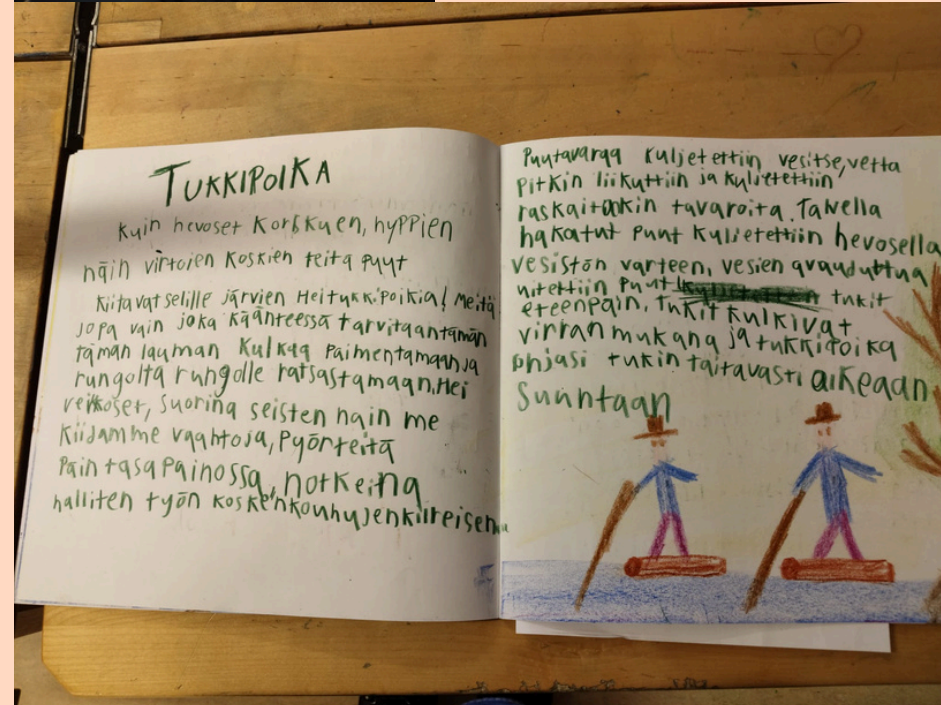 TUKKIPOIKA
kuin hevoset korskuen, hyppien
näin virtojen koskien teitä puut
kiitavat selille järvien Hei tukkipoikia! meitä
jopa vain joka käänteessä tarvitaan tämän
tämän lauman kulkaa paimentamaan ja
rungolta rungolle ratsastamaan. Hei
veikoset, suorina seisten näin me
kiidamme vaahtoja, pyörteitä
päin tasapainossa, notkeina
halliten työn kosken kouhujen
Puutavaraa kuljetettiin vesitse, vettä
pitkin liikuttiin ja kuljetettiin
raskaitankin tavaroita. Talvella
hakatut puut kuljetettiin hevosella
vesistön varteen, vesien avauduttua
uitettiin puut tukit
eteenpäin, tukit kulkivat
virran mukana ja tukkipoika
ohjasi tukin taitavasti oikeaan
suuntaan